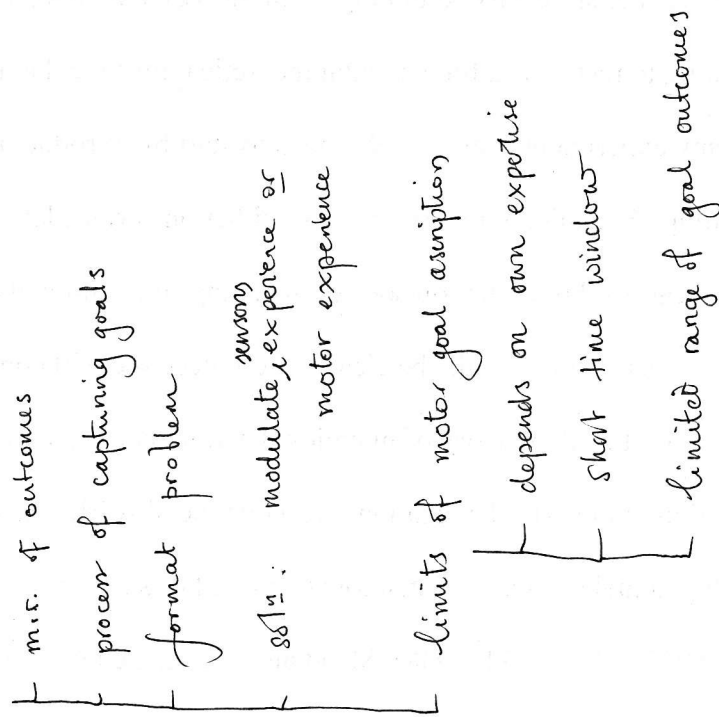 m.r. of outcomes
process of capturing goals
format problem
solⁿ: modulate sensory experience or
motor experience
limits of motor goal ascription
depends on own expertise
short time window
limited range of goal outcomes